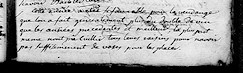 cette année a été si favorable pour la vendange
que l'on a fait généralement plus du double de vin
que les années précédentes et meilleur, la plupart
n'ont pas cueilli tous leurs raisins pour n'avoir
pas suffisamment de vases pour les placer.